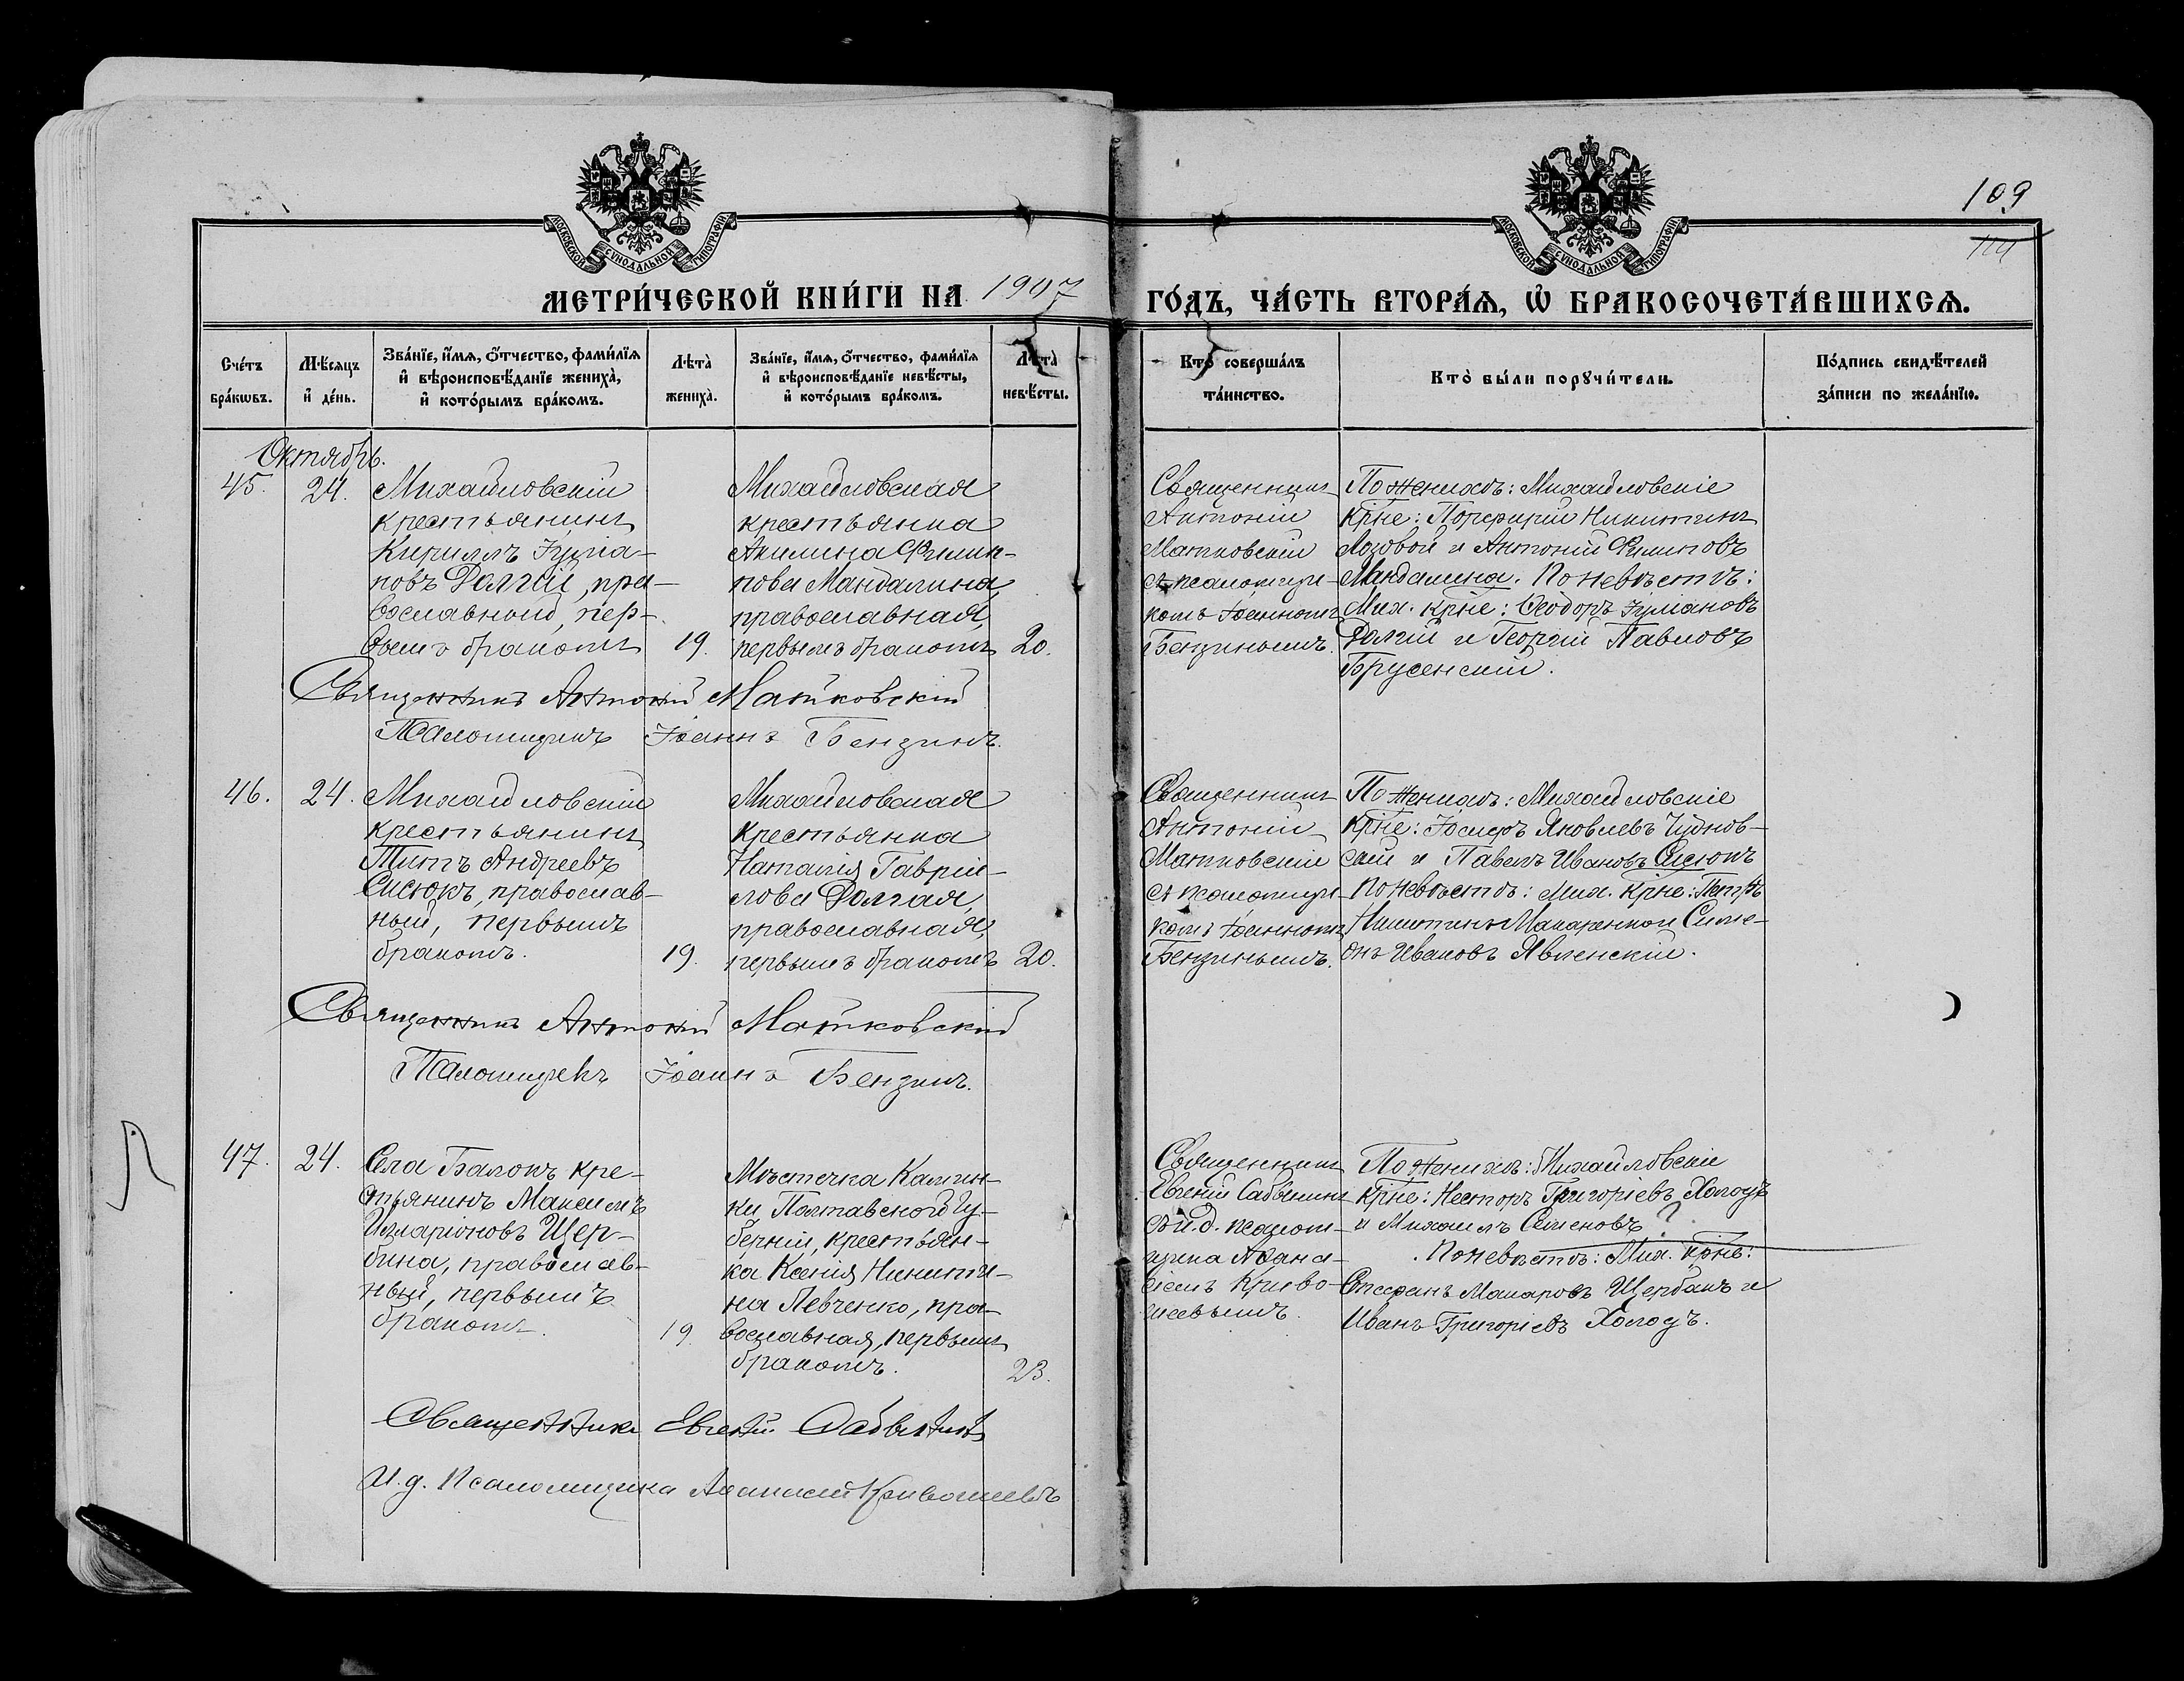 109
114
МОСКОВСКОЙ СѴНОДАЛЬНОЙ ТИПОГРАФІИ
МОСКОВСКОЙ СѴНОДАЛЬНОЙ ТИПОГРАФІИ
МЕТРИ́ЧЕСКОЙ КНИ́ГИ НА 1907 ГО́ДЪ, ЧА́СТЬ ВТОРА́Ѧ, Ѽ БРАКОСОЧЕТА́ВШИХСѦ.
Сче́тъ
бра́кѡвъ.
Мѣ́сяцъ
и҆ де́нь.
Зва́нїе, и҆́мѧ, ѻ҆́тчество, фами́лїѧ
и҆ вѣроисповѣ́данїе жениха̀,
и҆ кото́рымъ бра́комъ.
Лѣта̀
жениха̀.
Зва́нїе, и҆́мѧ, ѻ҆́тчество, фами́лїѧ
и҆ вѣроисповѣ́данїе невѣ́сты,
и҆ кото́рымъ бра́комъ.
Лѣта̀
невѣ́сты.
Кто̀ соверша́лъ
та́инство.
Кто̀ бы́ли порꙋчи́тели.
По́дпись свидѣ́телей
за́писи по жела́нїю.
Октябрь.
45.
24.
Михайловскій
крестьянинъ
Кириллъ Зума-
новъ Долгій, пра-
вославный, пер-
вымъ бракомъ
19.
Михайловская
крестьянка
Акилина Филип-
пова Мандалина,
православная,
первымъ бракомъ
20.
Священникъ
Антоній
Матковскій
съ псаломщи-
комъ Іоанномъ
Бензинымъ.
По женихѣ: Михайловскіе
крне: Порфирій Никитинъ
Лозовой и Антоній Филиповъ
Мандалина. По невѣстѣ:
Мих. крне: Ѳеодоръ Зумановъ
Долгій и Георгій Павловъ
Брусенскій.
Священникъ Антоній Матковскій
Псаломщикъ Іоаннъ Бензинъ.
46.
24.
Михайловскій
крестьянинъ
Титъ Андреевъ
Сисюкъ, православ-
ный, первымъ
бракомъ.
19.
Михайловская
крестьянка
Наталія Гавріи-
лова Долгая,
православная,
первымъ бракомъ
20.
Священникъ
Антоній
Матковскій
съ псаломщи-
комъ Іоанномъ
Бензинымъ.
По женихѣ: Михайловскіе
крне: Іосифъ Яковлевъ Чуднов-
скій и Павелъ Ивановъ Сисюкъ
По невѣстѣ: Мих. крне: Петръ
Никитинъ Макаренко и Симе-
онъ Ивановъ Явленскій.
Священникъ Антоній Матковскій
Псаломщикъ Іоаннъ Бензинъ.
47.
24.
Села Балокъ кре-
стьянинъ Максимъ
Иларіоновъ Щер-
бина, православ-
ный, первымъ
бракомъ.
19
Мѣстечка Калин-
ки Полтавской гу-
берніи, крестьян-
ка Ксенія Никити-
на Левченко, пра-
вославная, первымъ
бракомъ.
23.
Священникъ
Евгеній Сабынинъ
съ и.д. псалом-
щика Аѳана-
сіемъ Криво-
шеевымъ.
По женихѣ: Михайловскіе
крне: Несторъ Григорьевъ Холодъ
и Михаилъ Семеновъ ?
По невѣстѣ: Мих. крне:
Стефанъ Макаровъ Щербакъ и
Иванъ Григорьевъ Холодъ.
Священникъ Евгеній Сабынинъ
И.д. Псаломщика Аѳанасій Кривошеевъ